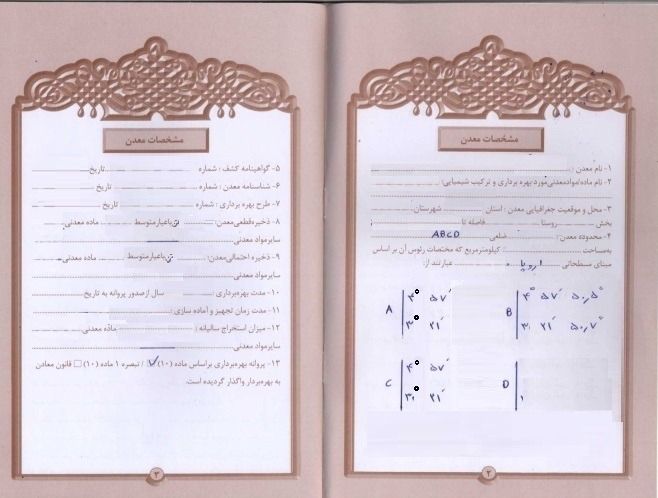 مشخصات معدن
۱- نام معدن :
۲- نام ماده/موادمعدنی مورد بهره برداری و ترکیب شیمیایی:
۳- محل و موقعیت جغرافیایی معدن : استان شهرستان
بخش روستا فاصله تا
۴- محدوده معدن: ضلعی ABCD
به‌مساحت کیلومترمربع که مختصات رئوس آن بر اساس
مبنای مسطحاتی اروپا عبارتند از:
A ۴° ۵۷′
۳° ۲۱′
B ۴° ۵۷′ ۵۰٫۵″
۳ ۲۱′ ۵۰٫۷″
C ۴° ۵۷′
۳° ۲۱′
D
۲
مشخصات معدن
۵- گواهینامه کشف : شماره تاریخ
۶- شناسنامه معدن : شماره تاریخ
۷- طرح بهره برداری : شماره تاریخ
۸- ذخیره‌قطعی‌معدن: تن‌باعیارمتوسط ماده معدنی
سایرمواد معدنی
۹- ذخیره احتمالی‌معدن: تن‌باعیارمتوسط ماده معدنی
سایرمواد معدنی
۱۰- مدت بهره‌برداری: سال از‌صدور پروانه به تاریخ
۱۱- مدت زمان تجهیز و آماده سازی :
۱۲- میزان استخراج سالیانه : ماده معدنی
سایرمواد معدنی
۱۳- پروانه بهره‌برداری براساس ماده (۱۰) ☑ / تبصره ۱ ماده (۱۰) □ قانون معادن
به بهره‌بردار واگذار گردیده است.
۳